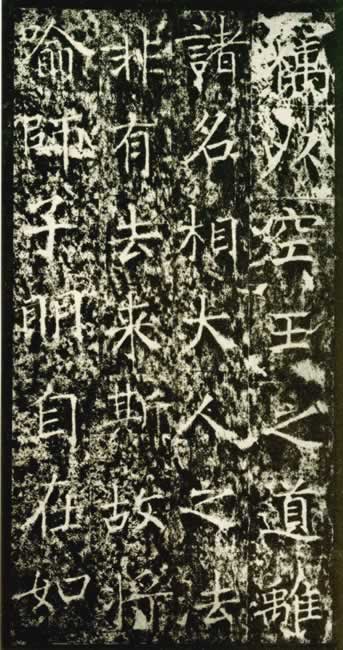 竊以空王之道離
諸名相大人之法
非有去来斯故將
喻師子明自在如